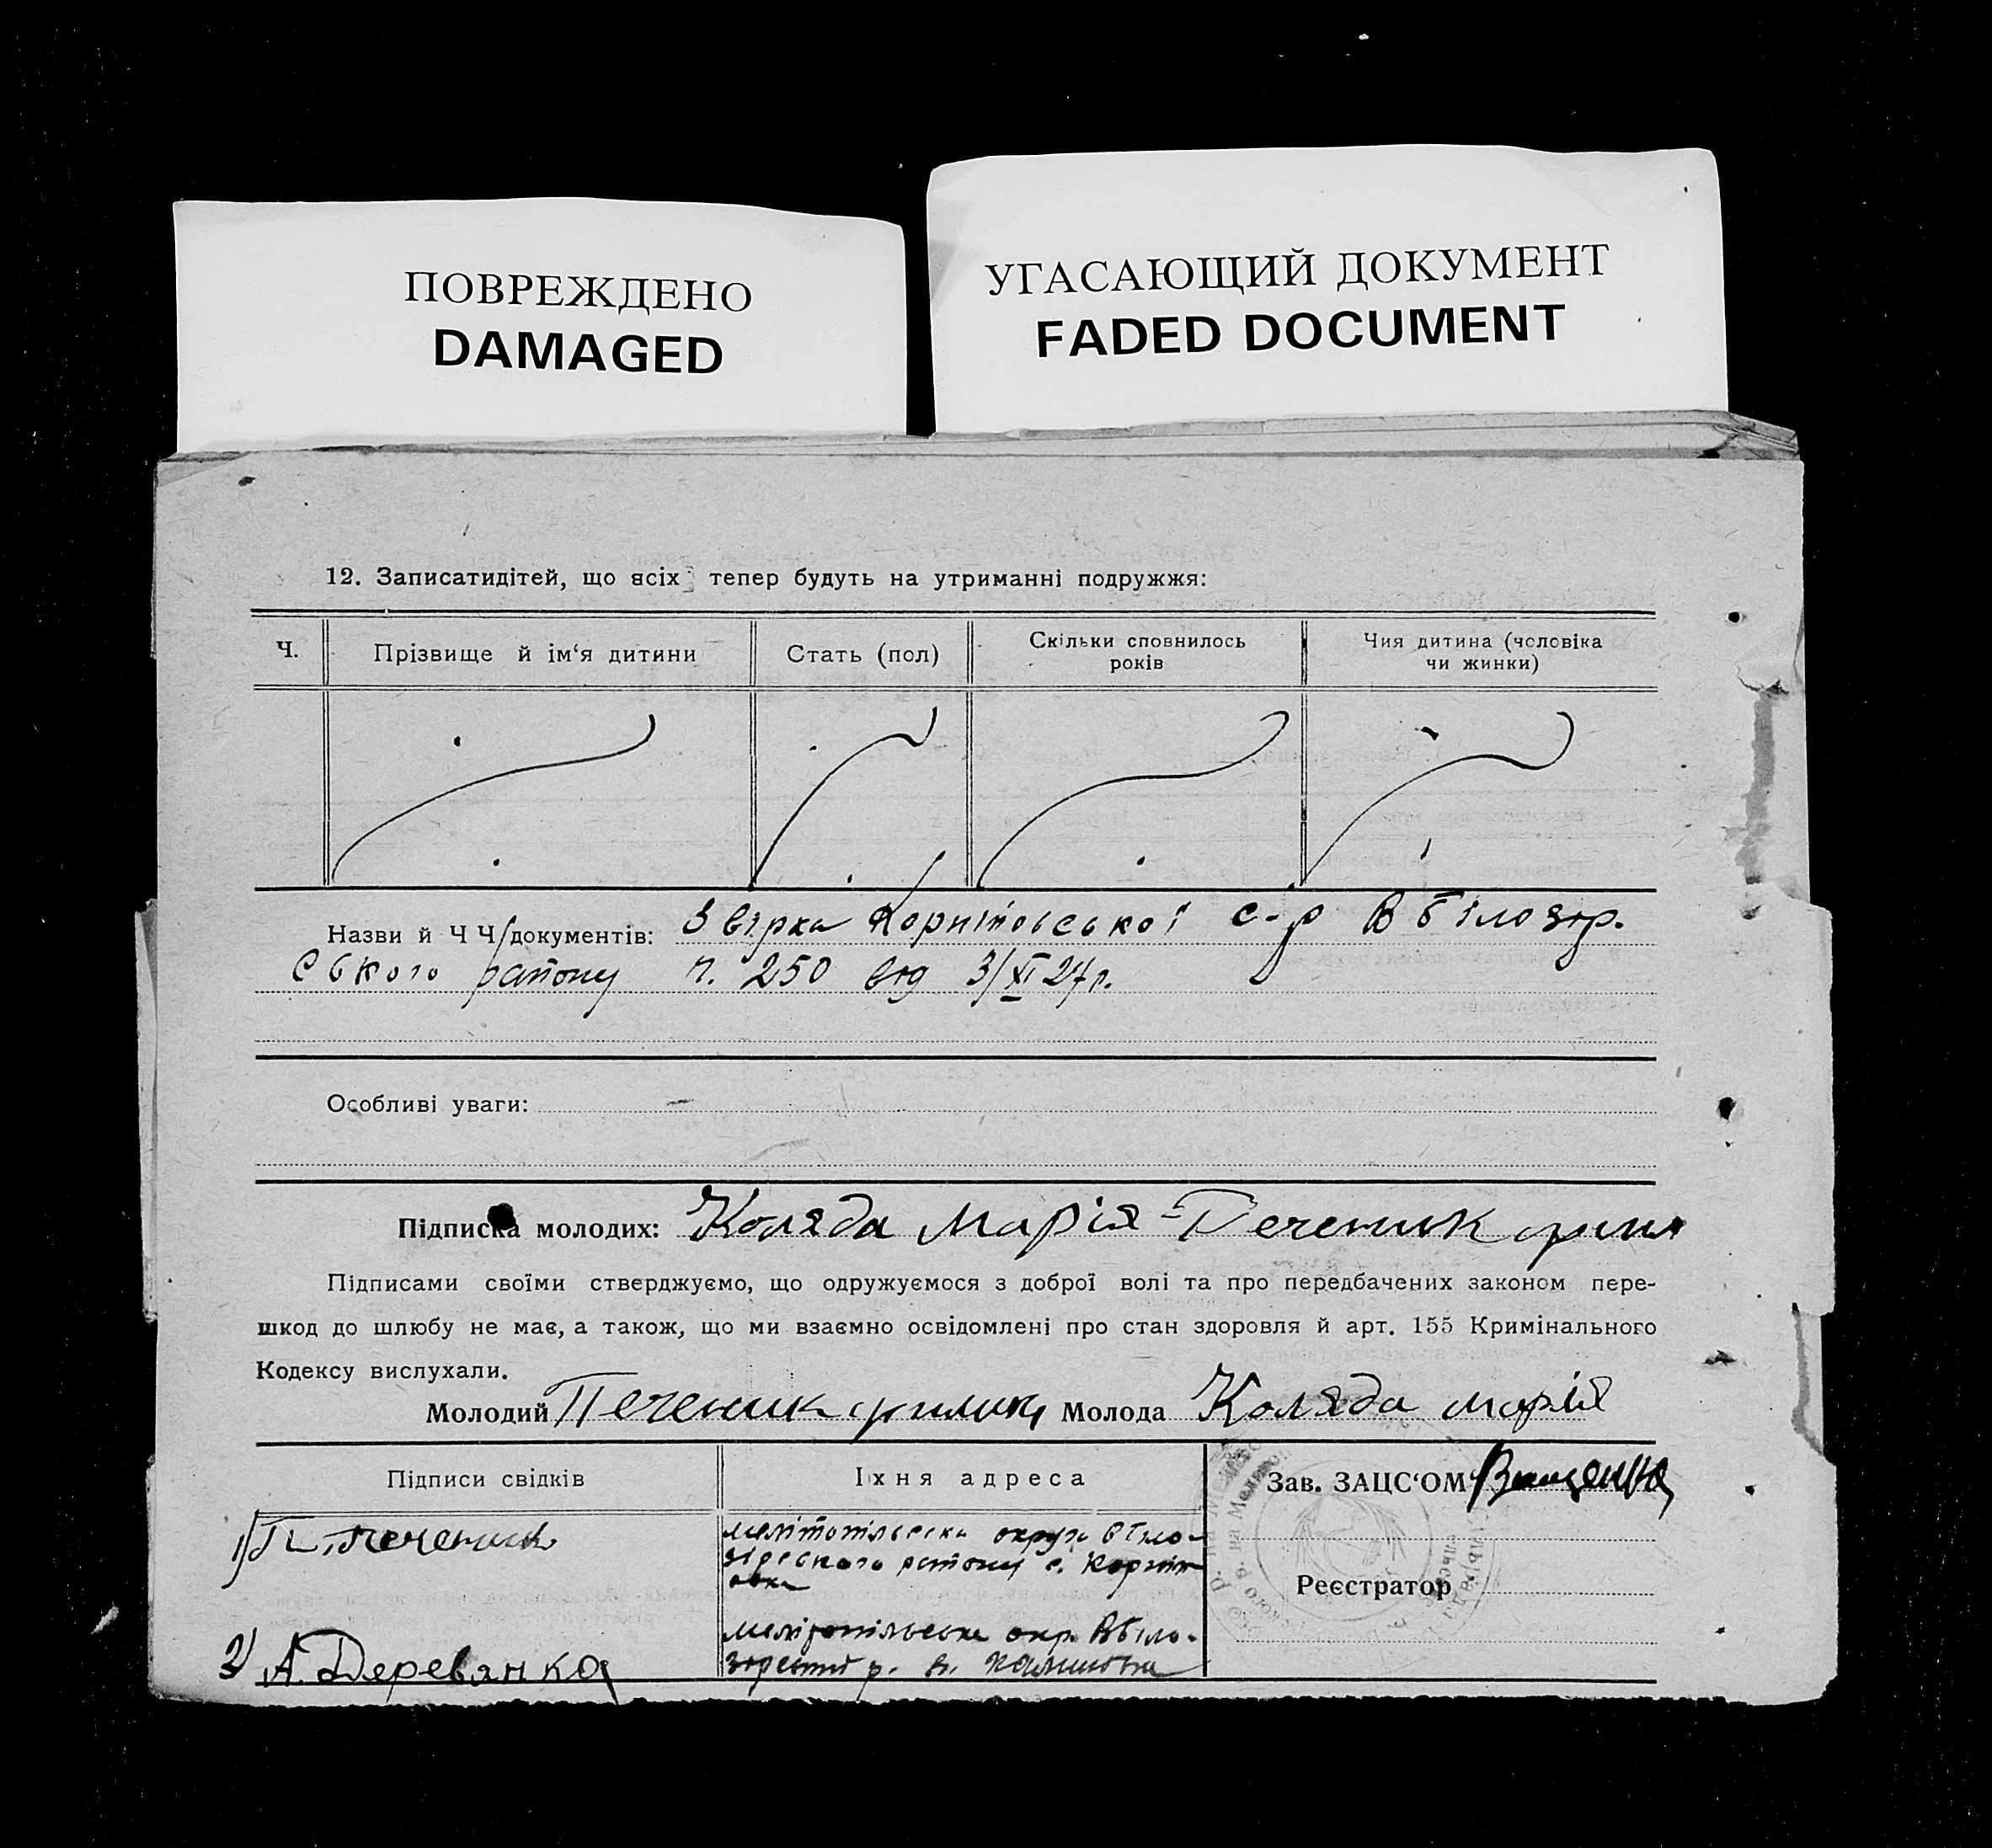 ПОВРЕЖДЕНО
DAMAGED
УГАСАЮЩИЙ ДОКУМЕНТ
FADED DOCUMENT
12. Записатидітей, що всіх тепер будуть на утриманні подружжя:
Ч.
Прізвище й ім‘я дитини
Стать (пол)
Скільки сповнилось
років
Чия дитина (чоловіка
чи жинки)
Назви й Ч Ч/документів: Звірка с-р В Білозер.
ського району п. 250 від 3/XI 27 р.
Особливі уваги: —
Підписка молодих: Коляда Марія - Печеник
Підписами своїми стверджуємо, що одружуємося з доброї волі та про передбачених законом пере-
шкод до шлюбу не має, а також, що ми взаємно освідомлені про стан здоровля й арт. 155 Кримінального
Кодексу вислухали.
Молодий Печеник Молода Коляда Марія
Підписи свідків
Їхня адреса
Зав. ЗАЦС‘ОМ
1) Печеник
мелітопільська округи В Біло-
зірського району с.
Реєстратор
2) А. Деревянко
мелітопільська окр. В Біло-